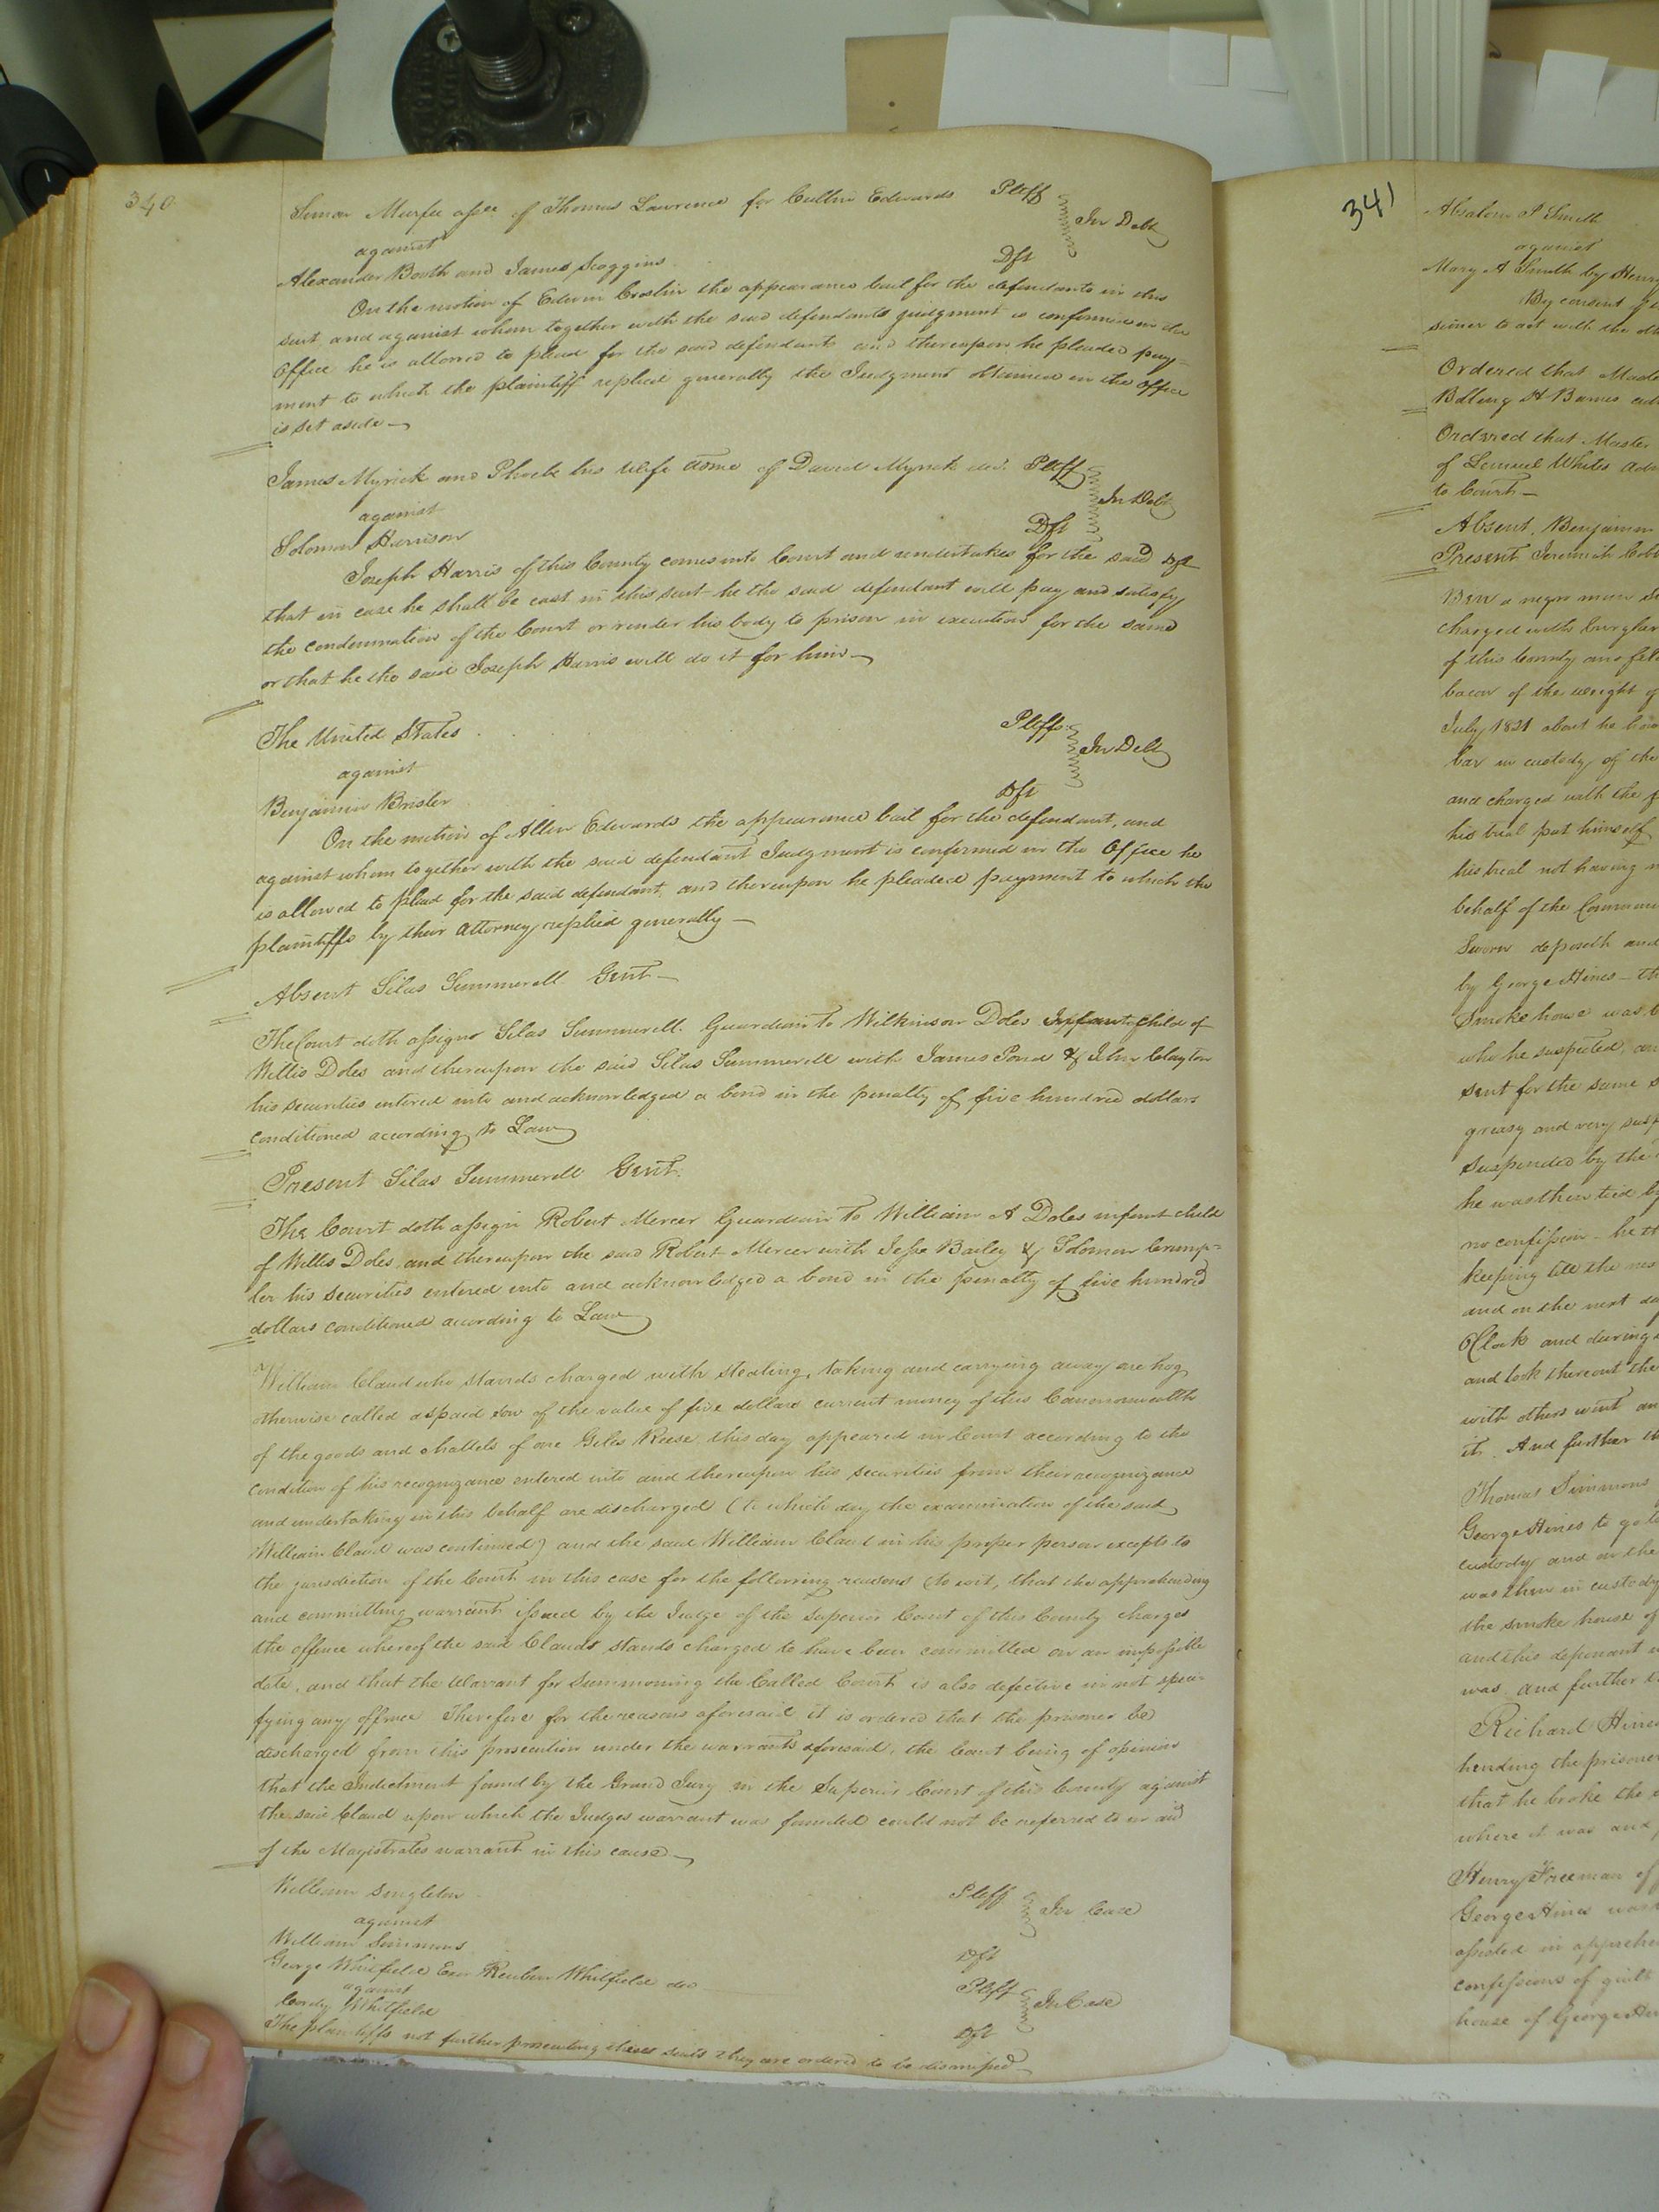 340
Simon Murfee assee of Thomas Lawrence for Cullin Edwards Pltff
In Debt
against
Alexander Booth and James Scoggins Dft
On the motion of Edwin the appearance bail for the defendants in this
suit and against whom together with the said defendants judgment is confirmed in the
Office he is allowed to plead for the said defendants and thereupon he pleaded pay-
ment to which the plaintiff replied generally the Judgment obtained in the Office
is set aside
James Myrick and Phoebe his Wife of David Myrick dec. Pltff
In Debt
against
Solomon Harrison Dft
Joseph Harris of this County comes into Court and undertakes for the said Dft
that in case he shall be cast in this suit he the said defendant will pay and satisfy
the condemnation of the Court or render his body to prison in execution for the same
or that he the said Joseph Harris will do it for him
The United States Pltffs
In Debt
against
Benjamin Brister Dft
On the motion of Allen Edwards the appearance bail for the defendant, and
against whom together with the said defendant Judgment is confirmed in the Office he
is allowed to plead for the said defendant, and thereupon he pleaded payment to which the
plaintiffs by their Attorney replied generally
Absent Silas Summerell Gent
The Court doth assign Silas Summerell Guardian to Wilkinson Doles Infant Child of
Willis Doles and thereupon the said Silas Summerell with James Pond & John Clayton
his securities entered into and acknowledged a bond in the penalty of five hundred dollars
conditioned according to Law
Present Silas Summerell Gent.
The Court doth assign Robert Mercer Guardian to William A Doles infant child
of Willis Doles and thereupon the said Robert Mercer with Jesse Bailey & Solomon Crump-
ler his securities entered into and acknowledged a bond in the penalty of five hundred
dollars conditioned according to Law
William Claud who stands charged with stealing, taking and carrying away one hog
otherwise called a spaid sow of the value of five dollars current money of this Commonwealth
of the goods and chattels of one Giles Reese this day appeared in Court according to the
condition of his recognizance entered into and thereupon his securities from their recognizance
and undertaking in this behalf are discharged (to which day the examination of the said
William Claud was continued) and the said William Claud in his proper person excepts to
the jurisdiction of the Court in this case for the following reasons (to wit, that the apprehending
and committing warrant issued by the Judge of the Superior Court of this County charges
the offence whereof the said Claud stands charged to have been committed on an impossible
date, and that the Warrant for Summoning the Called Court is also defective in not speci-
fying any offence Therefore for the reasons aforesaid it is ordered that the prisoner be
discharged from this prosecution under the warrants aforesaid, the Court being of opinion
that the Indictment found by the Grand Jury in the Superior Court of this County against
the said Claud upon which the Judges warrant was founded could not be referred to in aid
of the Magistrates warrant in this cause
William Singleton Pltff
In Case
against
William Simmons Dft
George Whitfield Exor Reuben Whitfield dec Pltff
In Case
against
Cordy Whitfield Dft
The plaintiffs not further prosecuting these suits they are ordered to be dismissed
341
Absalom P Smith
against
Mary A Smith by Henry
By consent of
sioner to act with the
Ordered that
Bolling H Barnes
Ordered that Master
of Lemuel Whites
to Court
Absent, Benjamin
Present Jeremiah Cobb
Ben a negro man
charged with burglar
of this County and
bacon of the weight of
July 1821 about the
bar in custody of the
and charged with the
his trial put himself
his trial not having
behalf of the
Sworn deposeth and
by George Hines
Smoke house was
who he suspected, an
sent for the same
greasy and very
Suspended by the
he was then tied by
no confession he
keeping till the
and on the next
OClock and during
and took thereout the
with others went an
it. And further
Thomas Simmons
George Hines to go to
custody and on the
was then in custody
the smoke house of
and this deponent
was, and further
Richard Hines
hending the prisoner
that he broke the
where it was and
Henry Freeman of
George Hines was
assisted in
confessions of guilt
house of George